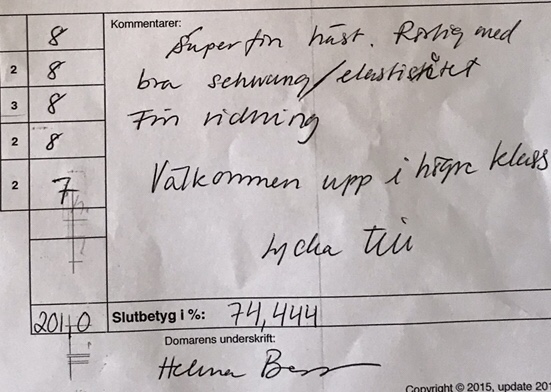 8
Kommentarer:
Superfin häst. Rörlig med
2 8
bra schwung/elasticitet
3 8
Fin ridning
2 8
Välkommen upp i högre klass
2 7
Lycka till
201,0
Slutbetyg i %: 74,444
Domarens underskrift:
Helena
Copyright © 2015, update 201